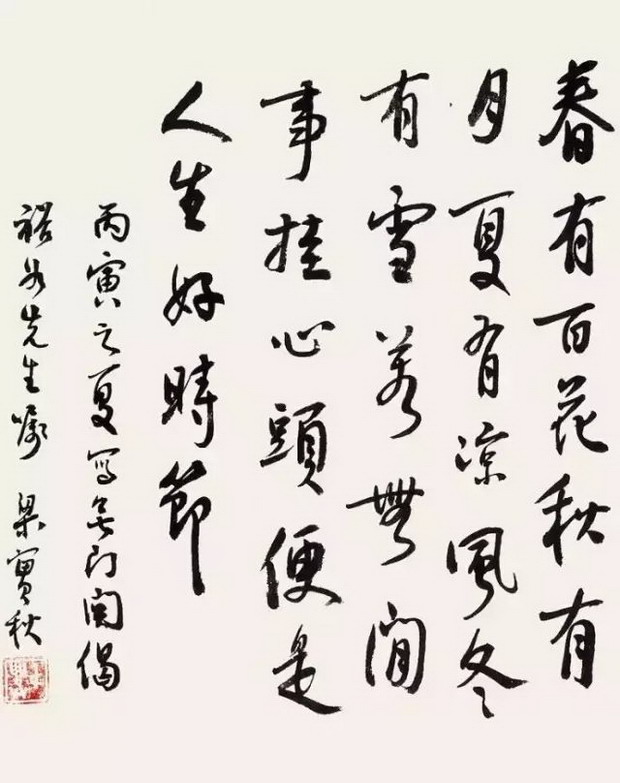 春有百花秋有
月夏有涼風冬
有雪若無閒
事挂心頭便是
人生好時節
丙寅之夏寫無门関偈
先生嘱 梁實秋